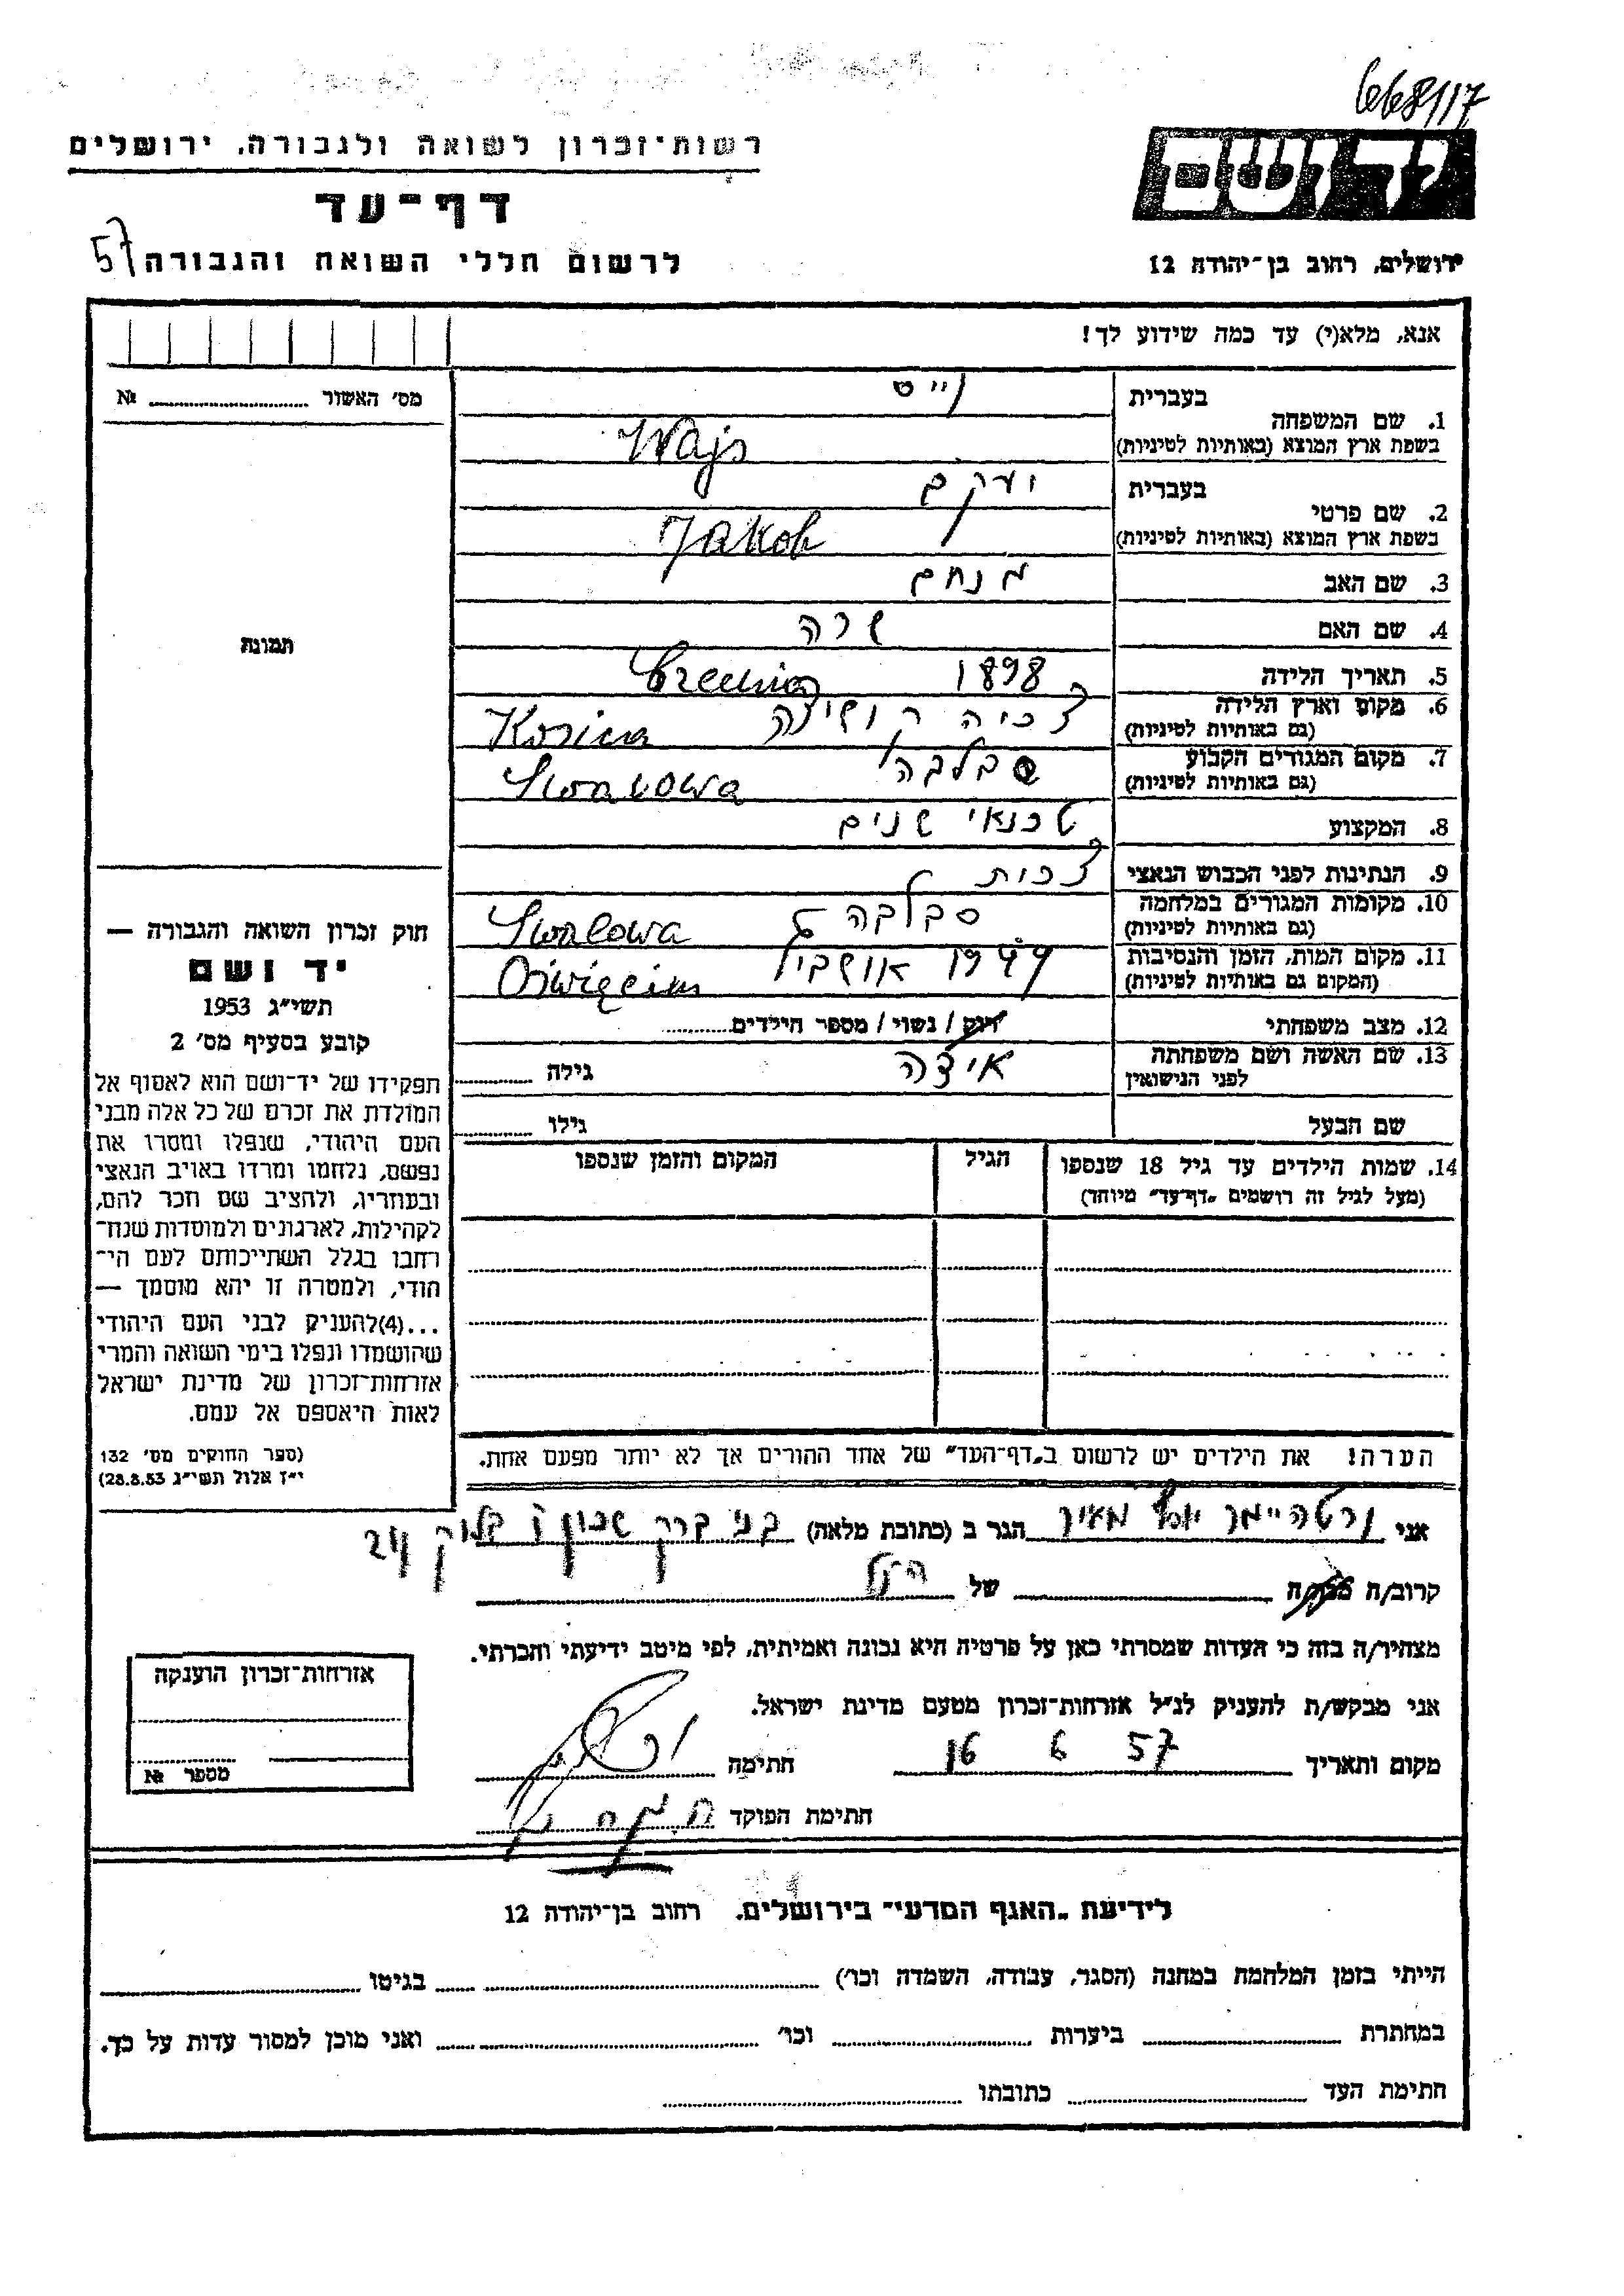 668/17
רשות־זכרון לשואה ולגבורה, ירושלים
דף־עד
לרשום חללי השואה והגבורה 57
יד ושם
ירושלים, רחוב בן־יהודה 12
אנא, מלא(י) עד כמה שידוע לך!
מס׳ האשור № 
תמונה
בעברית
וייס
1. שם המשפחה
בשפת ארץ המוצא (באותיות לטיניות)
Wajs
בעברית
יעקב
2. שם פרטי
בשפת ארץ המוצא (באותיות לטיניות)
Jakob
3. שם האב
מנחם
4. שם האם
שרה
5. תאריך הלידה
1898
6. מקום וארץ הלידה
(גם באותיות לטיניות)
7. מקום המגורים הקבוע
(גם באותיות לטיניות)
8. המקצוע
טכנאי שנים
9. הנתינות לפני הכבוש הנאצי
צכית
10. מקומות המגורים במלחמה
(גם באותיות לטיניות)
סבלבה
11. מקום המות, הזמן והנסיבות
(המקום גם באותיות לטיניות)
1944
12. מצב משפחתי
רווק / נשוי / מספר הילדים
13. שם האשה ושם משפחתה
לפני הנישואין
גילה
שם הבעל
גילו
14. שמות הילדים עד גיל 18 שנספו
(מעל לגיל זה רושמים „דף־עד״ מיוחד)
הגיל
המקום והזמן שנספו
הערה! את הילדים יש לרשום ב„דף־העד״ של אחד ההורים אך לא יותר מפעם אחת.
חוק זכרון השואה והגבורה —
יד ושם
תשי״ג 1953
קובע בסעיף מס׳ 2
תפקידו של יד־ושם הוא לאסוף אל
המולדת את זכרם של כל אלה מבני
העם היהודי, שנפלו ומסרו את
נפשם, נלחמו ומרדו באויב הנאצי
ובעוזריו, ולהציב שם וזכר להם,
לקהילות, לארגונים ולמוסדות שנח־
רבו בגלל השתייכותם לעם הי־
הודי, ולמטרה זו יהא מוסמך —
...(4) להעניק לבני העם היהודי
שהושמדו ונפלו בימי השואה והמרי
אזרחות־זכרון של מדינת ישראל
לאות היאספם אל עמם.
(ספר החוקים מס׳ 132
י״ז אלול תשי״ג 28.8.53)
אני ורטהיימר יוסף מאיר הגר ב (כתובת מלאה) בני ברק שכון ז בלוק 24
קרוב/ה מכר/ה של הנ״ל
מצהיר/ה בזה כי העדות שמסרתי כאן על פרטיה היא נכונה ואמיתית, לפי מיטב ידיעתי והכרתי.
אני מבקש/ת להעניק לנ״ל אזרחות־זכרון מטעם מדינת ישראל.
מקום ותאריך 16 6 57 חתימה
חתימת הפוקד
אזרחות־זכרון הוענקה
מספר №
לידיעת „האגף המדעי״ בירושלים, רחוב בן־יהודה 12
הייתי בזמן המלחמה במחנה (הסגר, עבודה, השמדה וכו׳) בגיטו
במחתרת ביערות וכו׳ ואני מוכן למסור עדות על כך.
חתימת העד כתובתו